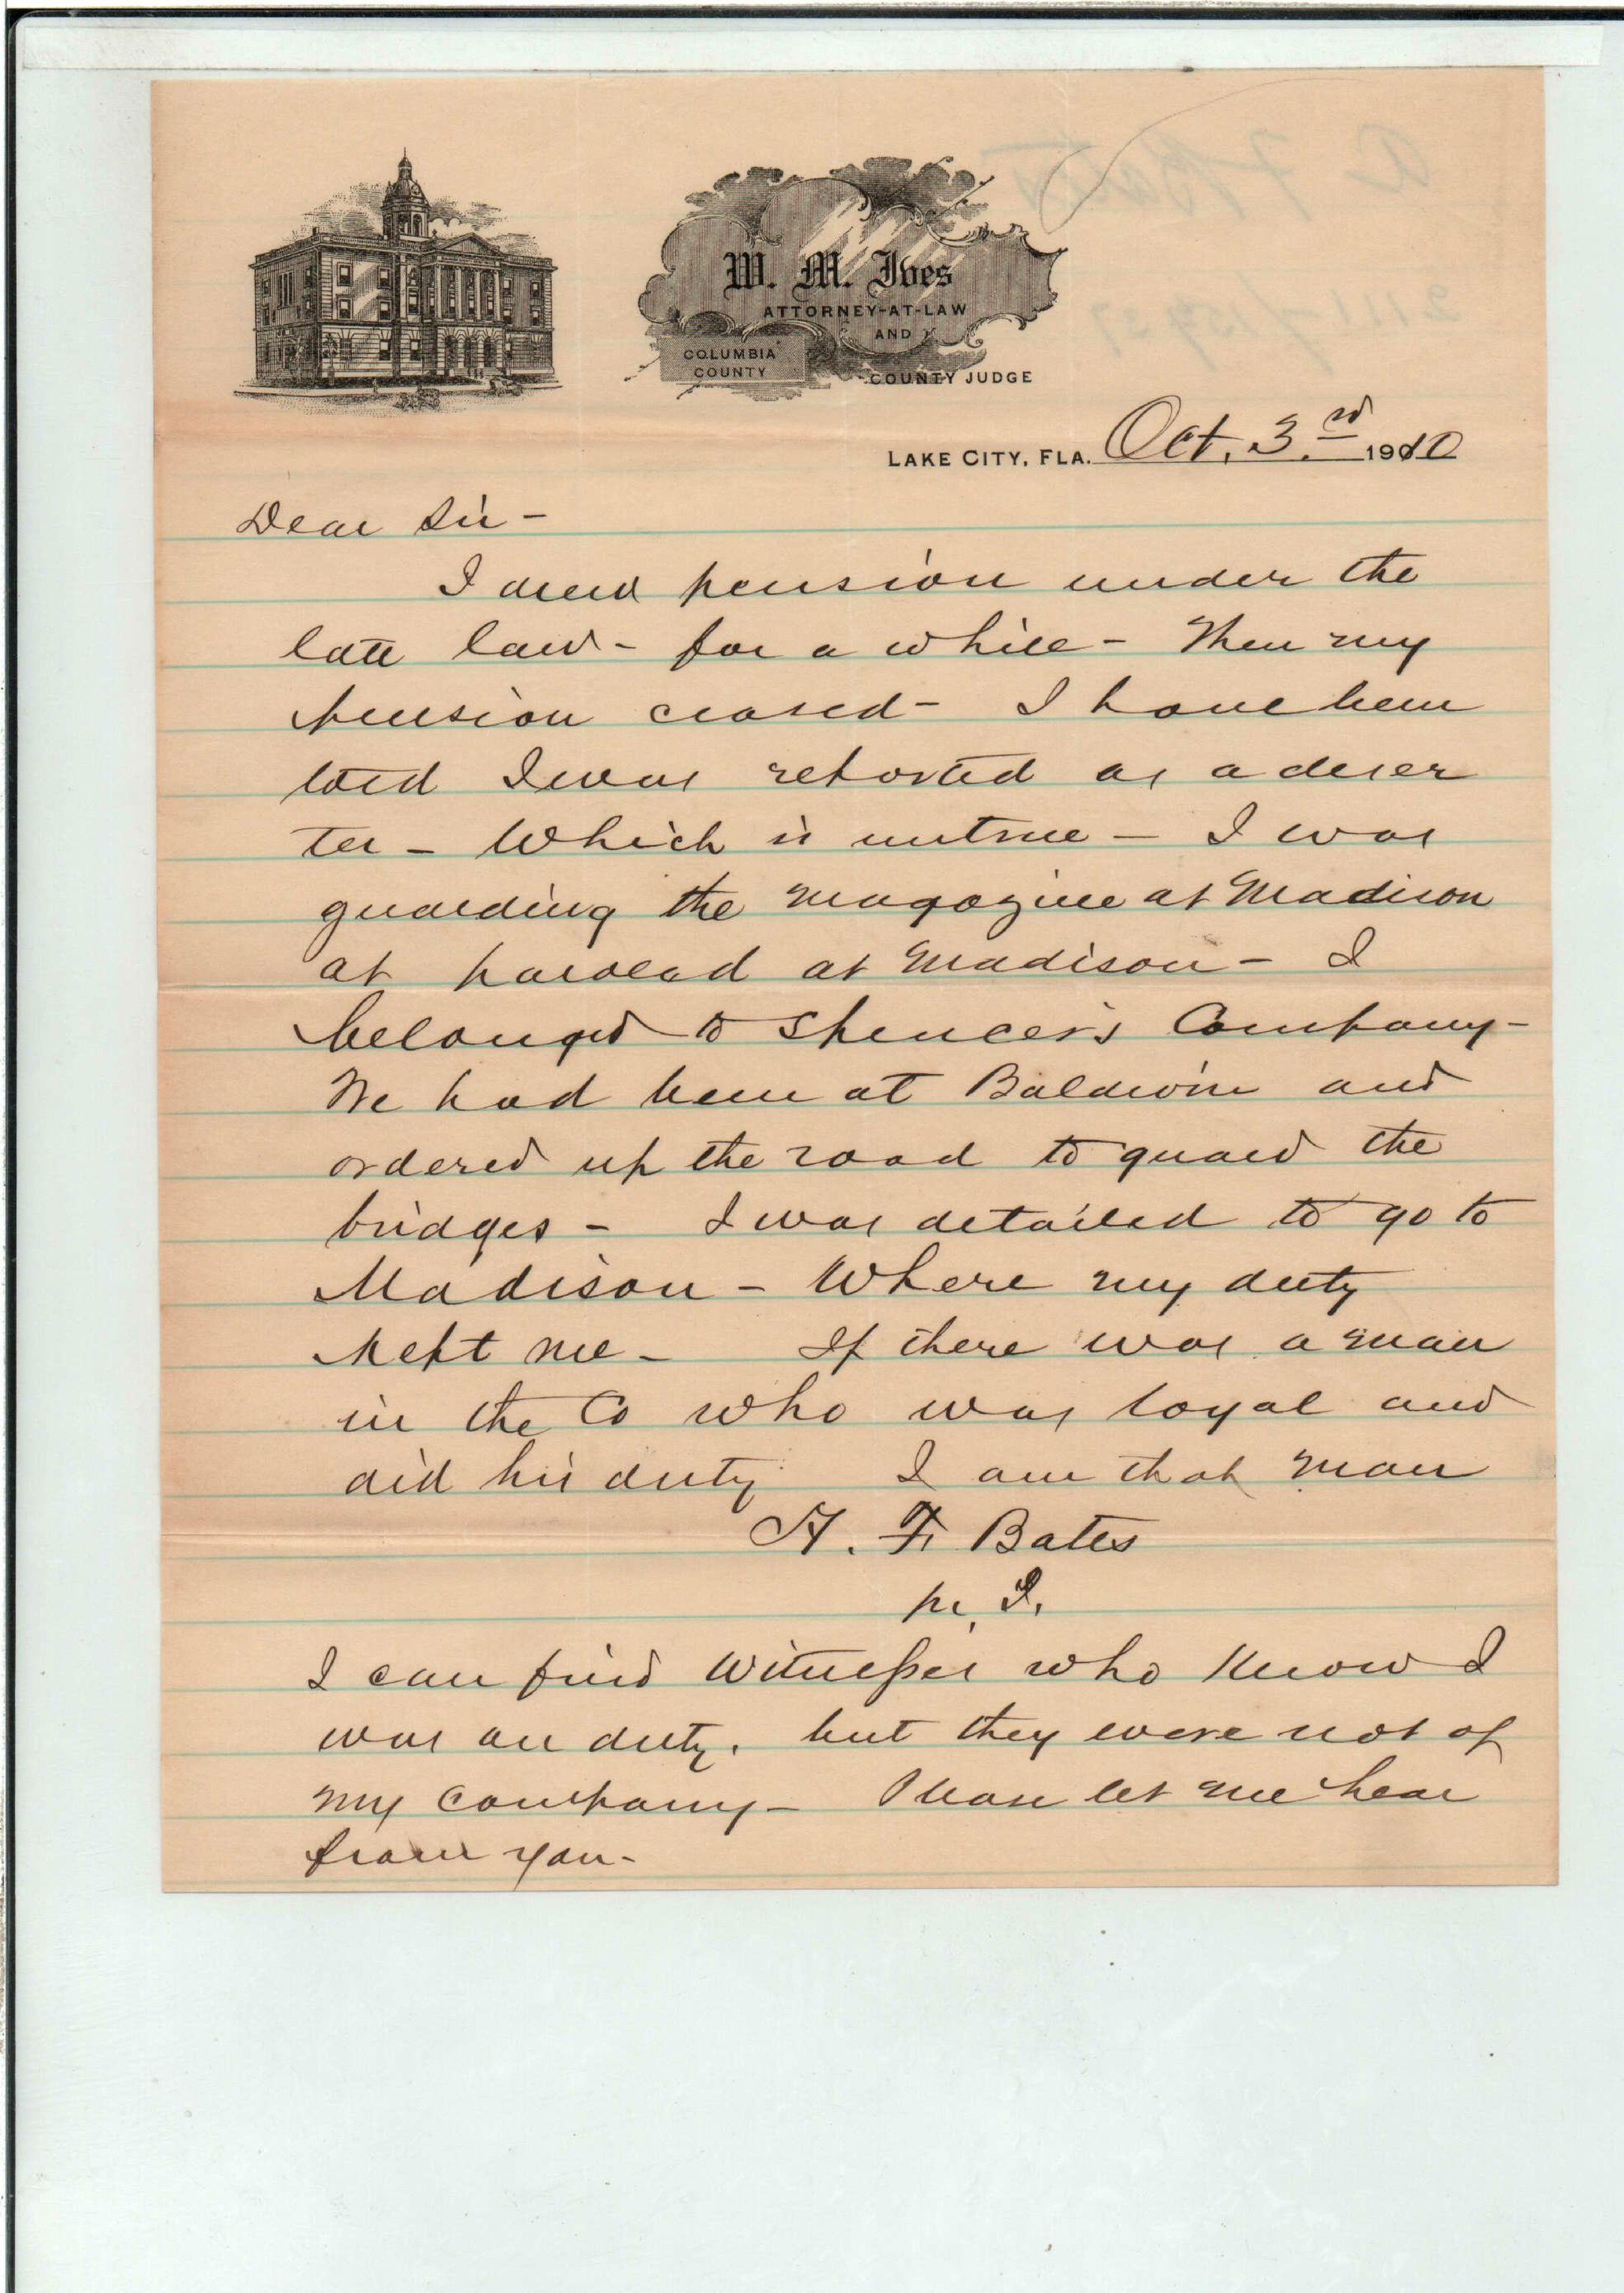 W. M. Ives
ATTORNEY-AT-LAW
AND
COLUMBIA
COUNTY
COUNTY JUDGE
LAKE CITY, FLA. Oct. 3rd 1910
Dear Sir -
I drew pension under the
late law - for a while - Then my
pension ceased - I have been
told I was reported as a deser
ter - Which is untrue - I was
guarding the magazine at Madison
at at Madison - I
belonged to Spencer's Company -
We had been at Baldwin and
ordered up the road to guard the
bridges - I was detailed to go to
Madison - Where my duty
kept me - If there was a man
in the Co who was loyal and
did his duty I am that man
A. F. Bates
pr. I.
I can find witnesses who know I
was on duty. but they were not of
my company - Please let me hear
from you -